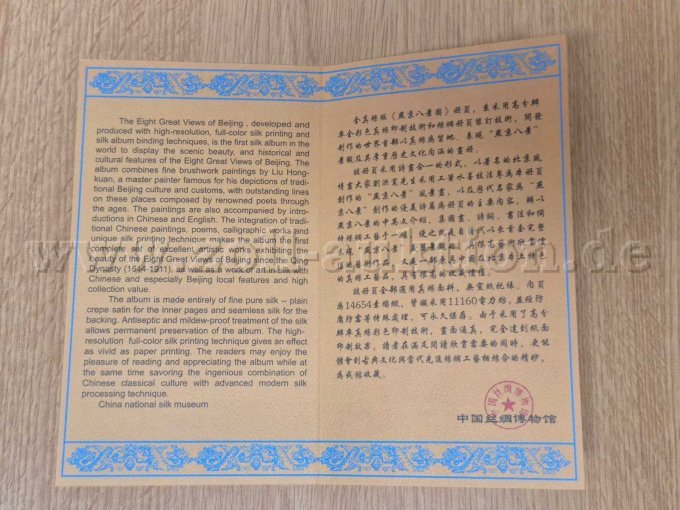 The Eight Great Views of Beijing , developed and
produced with high-resolution, full-color silk printing and
silk album binding techniques, is the first silk album in the
world to display the scenic beauty, and historical and
cultural features of the Eight Great Views of Beijing. The
album combines fine brushwork paintings by Liu Hong-
kuan, a master painter famous for his depictions of tradi-
tional Beijing culture and customs, with outstanding lines
on these places composed by renowned poets through
the ages. The paintings are also accompanied by intro-
ductions in Chinese and English. The integration of tradi-
tional Chinese paintings, poems, calligraphic works and
unique silk printing technique makes the album the first
complete set of excellent artistic works exhibiting the
Eight Great Views of Beijing since the Qing
Dynasty (1644-1911), as well as a work of art in silk with
Chinese and especially Beijing local features and high
collection value.
The album is made entirely of fine pure silk – plain
crepe satin for the inner pages and seamless silk for the
backing. Antiseptic and mildew-proof treatment of the silk
allows permanent preservation of the album. The high-
resolution full-color silk printing technique gives an effect
as vivid as paper printing. The readers may enjoy the
pleasure of reading and appreciating the album while at
the same time savoring the ingenious combination of
Chinese classical culture with advanced modern silk
processing technique.
China national silk museum
全真絲版《燕京八景圖》册頁，是采用高分辨
率全彩色真絲印制技術和絲綢册頁裝訂技術，開發
創作的世界首部以真絲爲質地、表現“燕京八景”
景觀在其厚重歷史文化内涵的畫册。
該册頁采用詩畫合一的形式，以著名的北京風
情畫大家劉洪寬先生采用工筆水墨技法專爲本册頁
創作的“燕京八景”風景畫，以在歷代名家爲“燕
京八景”創作的優美詩篇爲册頁的主要内容，輔以
燕京八景的中英文介紹，集國畫、詩詞、書法和獨
特絲綢工藝于一體，使之成爲自清代以來首套完整
表現“燕京八景”
的真絲工藝品，具有很高的收藏價值。
該册頁全部選用真絲面料，無塵絲織裱。内頁
爲14654素縐緞，背襯采用11160電力紡，並經防
腐防霉等特殊處理，可永久保存。由于采用了高分
辨率真絲彩色印制技術，畫面逼真，完全達到紙面
印制效果，讀者在滿足閱讀欣賞需要的同時，更能
體會到古典文化與當代先進絲綢工藝相結合的精妙，
爲我館收藏。
中国丝绸博物馆
www.zoll-auktion.de